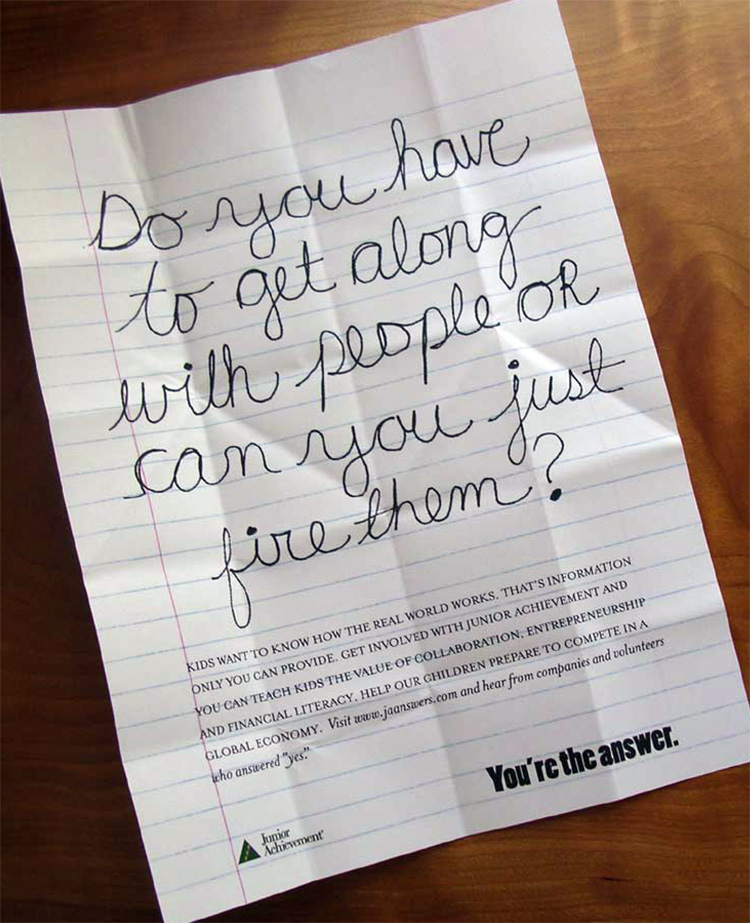 Do you have
to get along
with people OR
can you just
fire them?
KIDS WANT TO KNOW HOW THE REAL WORLD WORKS. THAT'S INFORMATION
ONLY YOU CAN PROVIDE. GET INVOLVED WITH JUNIOR ACHIEVEMENT AND
YOU CAN TEACH KIDS THE VALUE OF COLLABORATION, ENTREPRENEURSHIP
AND FINANCIAL LITERACY. HELP OUR CHILDREN PREPARE TO COMPETE IN A
GLOBAL ECONOMY. Visit www.jaanswers.com and hear from companies and volunteers
who answered "yes."
You're the answer.
Junior
Achievement®